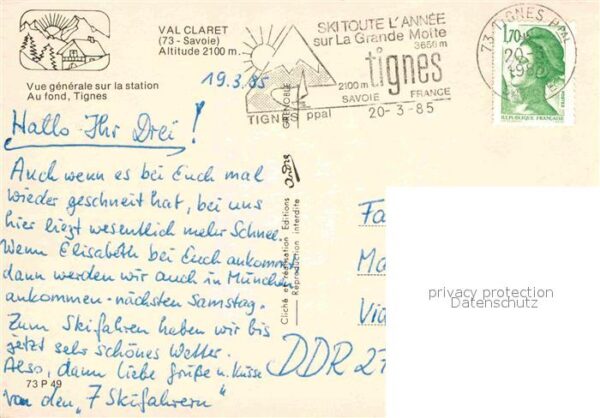 VAL CLARET
(73 - Savoie)
Altitude 2100 m.
Vue générale sur la station
Au fond, Tignes
SKI TOUTE L'ANNÉE
sur La Grande Motte
3656 m
2100 m tignes
SAVOIE FRANCE
TIGNES ppal 20-3-85
GRENOBLE
73 TIGNES ppal
1,70
REPUBLIQUE FRANCAISE
19.3.85
Hallo Ihr Drei!
Auch wenn es bei Euch mal
wieder geschneit hat, bei uns
hier liegt wesentlich mehr Schnee.
Wenn Elisabeth bei Euch ankommt
dann werden wir auch in München
ankommen - nächsten Samstag.
Zum Skifahren haben wir bis
jetzt sehr schönes Wetter.
Also, dann liebe Grüße u. Küsse
von den "7 Skifahrern"
73 P 49
Cliché et réalisation Editions
Reproduction interdite
Fa
Ma
Via
DDR 27
privacy protection
Datenschutz